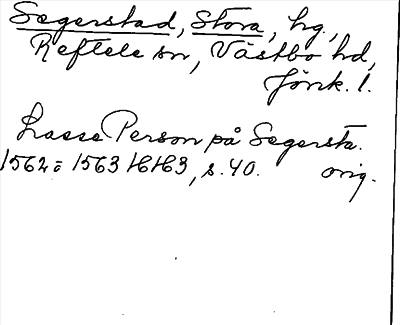 Segerstad, Stora, hg.,
Reftele sn, Västbo hd,
Jönk. l.
Lasse Person på Segersta.
1562 = 1563 HH3, s. 40. orig.